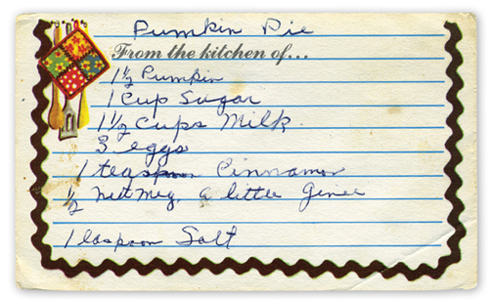 Pumkin Pie
From the kitchen of...
1½ Pumpkin
1 Cup Sugar
1½ Cups Milk
3 eggs
1 teaspoon Cinnamon
½ nutmeg, a little Ginee
1 easpoon Salt